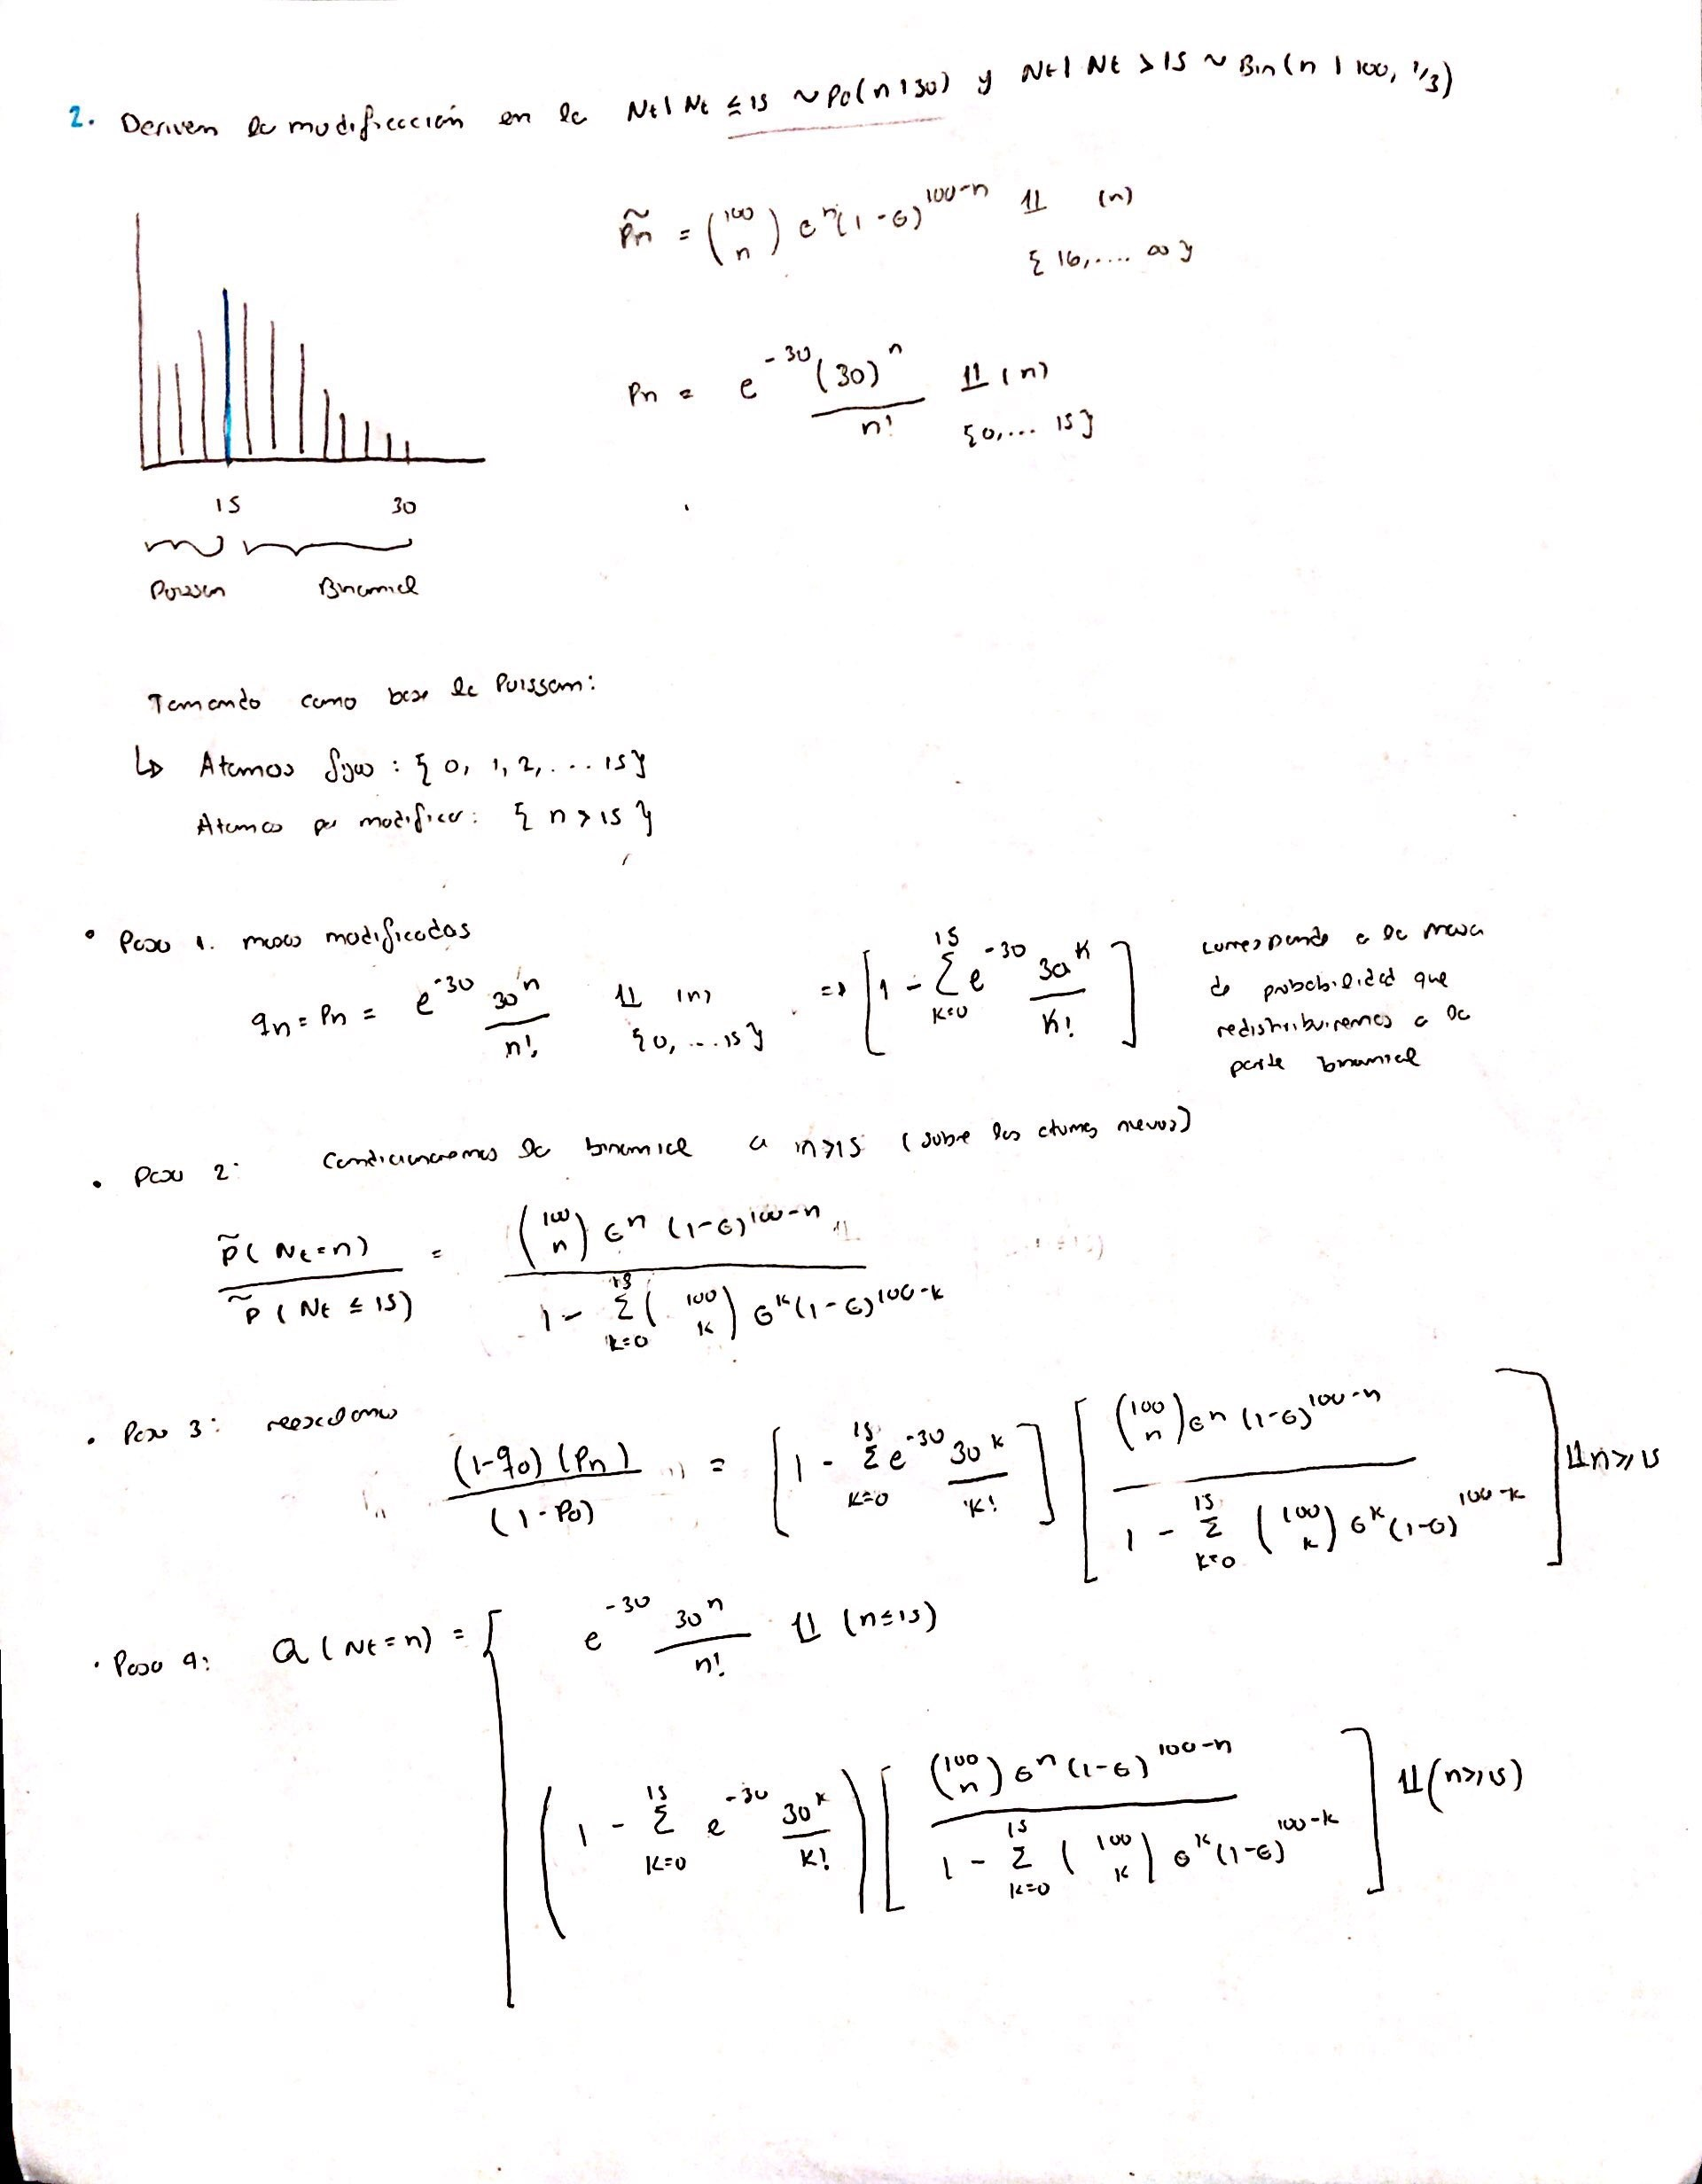 2. Deriven la modificación en la Nt | Nt ≤ 15 ~ Po(n | 30) y Nt | Nt > 15 ~ Bin(n | 100, 1/3)
P̃n = (100 n) θ^n (1-θ)^100-n 𝟙 (n) {16, .... ∞}
Pn = e^-30 (30)^n / n! 𝟙 (n) {0, ... 15}
15 30
Poisson Binomial
Tomando como base la Poisson:
↳ Átomos fijos : {0, 1, 2, ... 15}
Átomos por modificar: {n > 15}
• Paso 1. masas modificadas
qn = Pn = e^-30 30^n / n! 𝟙 (n) {0, ... 15} => [1 - Σ k=0 15 e^-30 30^k / k!]
corresponde a la masa
de probabilidad que
redistribuiremos a la
parte binomial
• Paso 2: Condicionaremos la binomial a n>15 (sobre los átomos nuevos)
P̃(Nt=n) / P̃(Nt ≤ 15) = (100 n) θ^n (1-θ)^100-n / 1 - Σ k=0 15 (100 k) θ^k (1-θ)^100-k
• Paso 3: reescalamos
(1-q0) (Pn) / (1-P0) = [1 - Σ k=0 15 e^-30 30^k / k!] [(100 n) θ^n (1-θ)^100-n / 1 - Σ k=0 15 (100 k) θ^k (1-θ)^100-k] 𝟙 n>15
• Paso 4: Q(Nt=n) = { e^-30 30^n / n! 𝟙 (n≤15)
(1 - Σ k=0 15 e^-30 30^k / k!) [(100 n) θ^n (1-θ)^100-n / 1 - Σ k=0 15 (100 k) θ^k (1-θ)^100-k] 𝟙 (n>15)